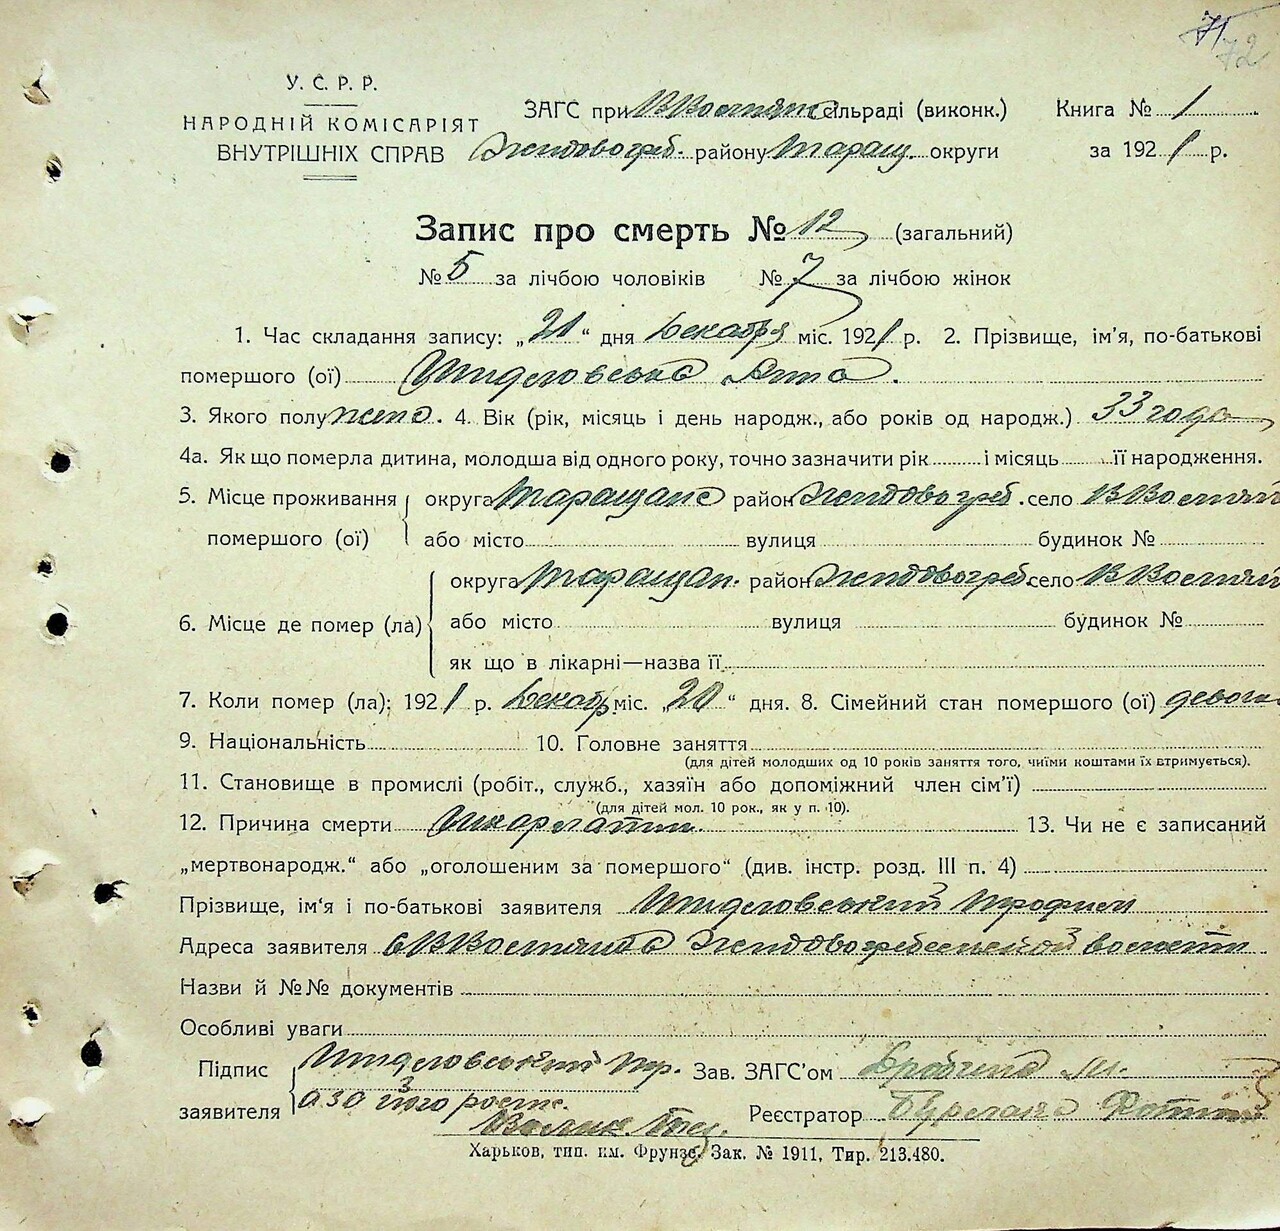 71 72
У. С. Р. Р.
НАРОДНІЙ КОМІСАРІЯТ
ВНУТРІШНІХ СПРАВ
ЗАГС при сільраді (виконк.)
Жидовогреб. району Таращ. округи
Книга № 1
за 1921 р.
Запис про смерть № 12 (загальний)
№ 5 за лічбою чоловіків № 7 за лічбою жінок
1. Час складання запису: „21“ дня Декабря міс. 1921 р. 2. Прізвище, ім'я, по-батькові
помершого (ої) Шидловська Анна.
3. Якого полу жено. 4. Вік (рік, місяць і день народж., або років од народж.) 33 года
4а. Як що померла дитина, молодша від одного року, точно зазначити рік і місяць її народження.
5. Місце проживання помершого (ої) округа Таращанс район Жидовогреб. село
або місто вулиця будинок №
6. Місце де помер (ла) округа Таращан. район Жидовогреб. село
або місто вулиця будинок №
як що в лікарні—назва її
7. Коли помер (ла): 1921 р. Декабр. міс. „20“ дня. 8. Сімейний стан помершого (ої)
9. Національність 10. Головне заняття
(для дітей молодших од 10 років заняття того, чиїми коштами їх втримується).
11. Становище в промислі (робіт., служб., хазяїн або допоміжний член сім'ї)
(для дітей мол. 10 рок., як у п. 10).
12. Причина смерти Шкарлатин 13. Чи не є записаний
„мертвонародж.“ або „оголошеним за помершого“ (див. інстр. розд. III п. 4)
Прізвище, ім'я і по-батькові заявителя Шидловський Трофим
Адреса заявителя Жидовогребельской волости
Назви й №№ документів
Особливі уваги
Підпис заявителя Шидловський Тр.
а за його роспс.
Зав. ЗАГС'ом
Реєстратор
Харьков, тип. им. Фрунзе, Зак. № 1911, Тир. 213.480.